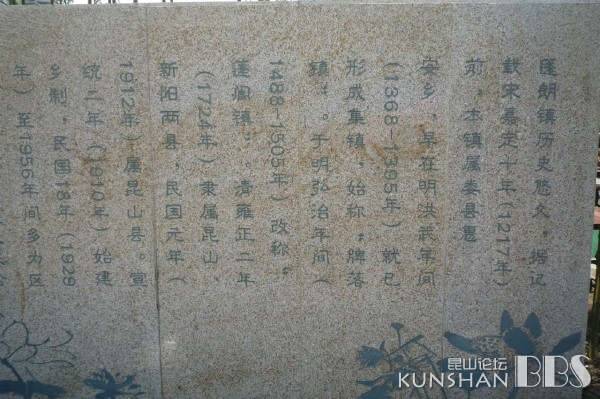 蓬朗镇历史悠久。据记
载宋嘉定十年(1217年)
前,本镇属娄县惠
安乡,早在明洪武年间
(1368-1395年)就已
形成集镇,始称“牌落
镇”。于明弘治年间(
1488-1505年)改称“
蓬阆镇”。清雍正二年
(1724年)隶属昆山、
新阳两县,民国元年(
1912年)属昆山县。宣
统二年(1910年)始建
乡制,民国18年(1929
年)至1956年间乡为区
昆山论坛
KUNSHAN BBS